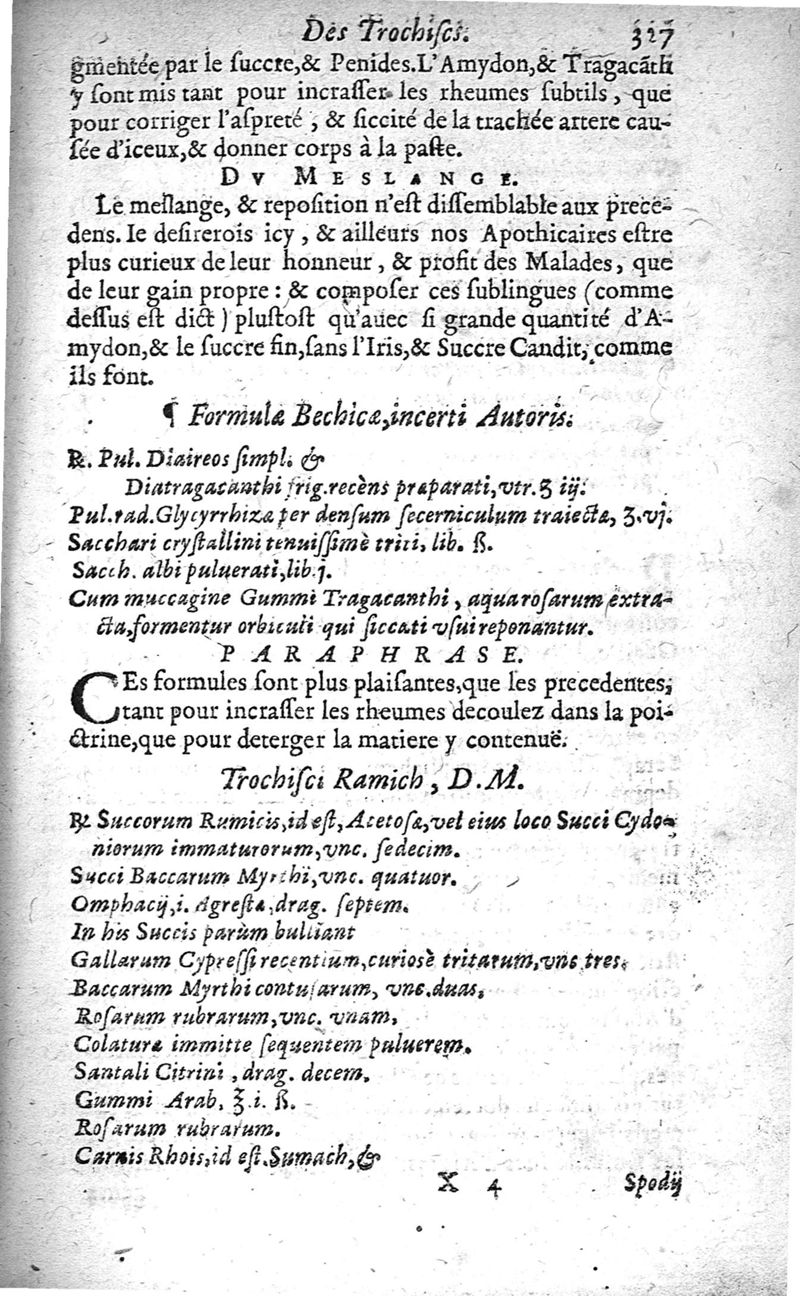 Des Trochiſcs. 327
gmentée par le ſuccre,& Penides.L'Amydon,& Tragacāth
y ſont mis tant pour incraſſer les rheumes ſubtils, que
pour corriger l'aſpreté, & ſiccité de la trachée artere cau-
ſée d'iceux,& donner corps à la paſte.
DV MESLANGE.
Le meſlange, & repoſition n'eſt diſſemblable aux prece-
dens. Ie deſirerois icy, & ailleurs nos Apothicaires eſtre
plus curieux de leur honneur, & profit des Malades, que
de leur gain propre : & compoſer ces ſublingues (comme
deſſus eſt dict) pluſtoſt qu'auec ſi grande quantité d'A-
mydon,& le ſuccre fin,ſans l'Iris,& Succre Candit, comme
ils font.
¶ Formulæ Bechicæ,incerti Autoris.
℞. Pul. Diaireos ſimpl. &
Diatragacanthi frig.recèns præparati,vtr.ʒ iij.
Pul.rad.Glycyrrhizæ per denſum ſecerniculum traiectæ, ʒ.vj.
Sacchari cryſtallini tenuiſſimè triti, lib. ß.
Sacch. albi puluerati,lib.j.
Cum muccagine Gummi Tragacanthi, aqua roſarum extra-
cta,formentur orbiculi qui ſiccati vſui reponantur.
PARAPHRASE.
CEs formules ſont plus plaiſantes,que les precedentes,
tant pour incraſſer les rheumes decoulez dans la poi-
ctrine,que pour deterger la matiere y contenuë.
Trochiſci Ramich, D.M.
℞ Succorum Rumicis,id eſt, Acetoſæ,vel eius loco Succi Cydo-
niorum immaturorum,vnc. ſedecim.
Succi Baccarum Myrthi,vnc. quatuor.
Omphacij,i. Agreſtæ,drag. ſeptem.
In his Succis parùm bulliant
Gallarum Cypreſſi recentium,curioſè tritarum,vnc tres.
Baccarum Myrthi contuſarum, vnc.duas,
Roſarum rubrarum,vnc. vnam,
Colaturæ immitte ſequentem puluerem.
Santali Citrini, drag. decem.
Gummi Arab. ℥.i. ß.
Roſarum rubrarum.
Carnis Rhois,id eſt.Sumach,&
X 4 Spodij